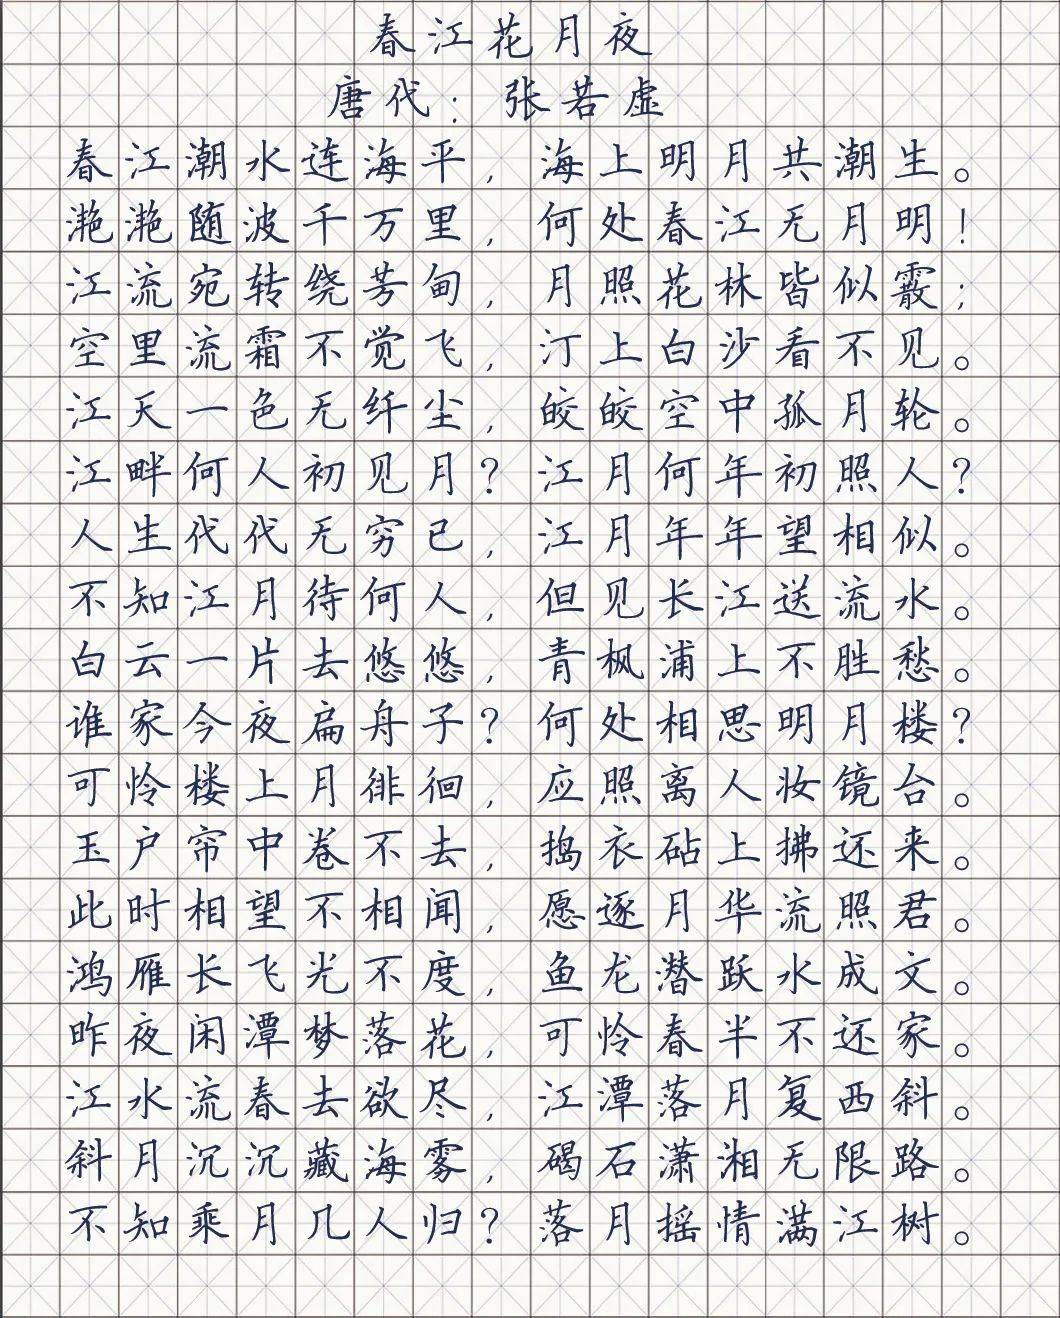 春江花月夜
唐代：张若虚
春江潮水连海平，海上明月共潮生。
滟滟随波千万里，何处春江无月明！
江流宛转绕芳甸，月照花林皆似霰；
空里流霜不觉飞，汀上白沙看不见。
江天一色无纤尘，皎皎空中孤月轮。
江畔何人初见月？江月何年初照人？
人生代代无穷已，江月年年望相似。
不知江月待何人，但见长江送流水。
白云一片去悠悠，青枫浦上不胜愁。
谁家今夜扁舟子？何处相思明月楼？
可怜楼上月徘徊，应照离人妆镜台。
玉户帘中卷不去，捣衣砧上拂还来。
此时相望不相闻，愿逐月华流照君。
鸿雁长飞光不度，鱼龙潜跃水成文。
昨夜闲潭梦落花，可怜春半不还家。
江水流春去欲尽，江潭落月复西斜。
斜月沉沉藏海雾，碣石潇湘无限路。
不知乘月几人归？落月摇情满江树。